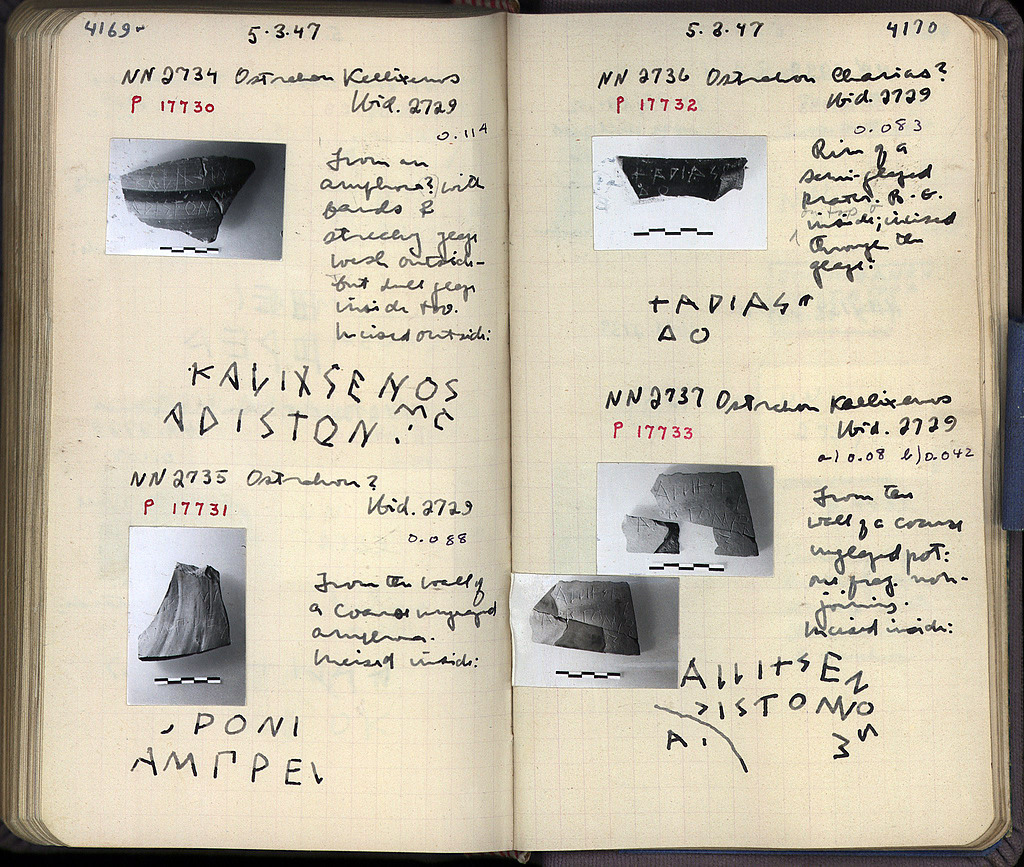 4169
5.3.47
NN 2734 Ostrakon Kallixenos
P 17730
Ibid. 2729
0.114
From an
amphora? with
bands &
streaky glaze
wash outside –
but dull glaze
inside too.
Incised outside:
KAVIXSENOS
ADISTON
NN 2735 Ostrakon?
P 17731
Ibid. 2729
0.088
From the wall of
a coarse unglazed
amphora.
Incised inside:
PONI
AMΓPE
5.3.47
4170
NN 2736 Ostrakon Charias?
P 17732
Ibid. 2729
0.083
Rim of a
semi-glazed
krater. B. G.
inside; incised
through the
glaze:
+ADIAS
ΔO
NN 2737 Ostrakon Kallixenos
P 17733
Ibid. 2729
a) 0.08 b) 0.042
From the
wall of a coarse
unglazed pot:
one frag. non-
joining.
Incised inside:
ISTO
A